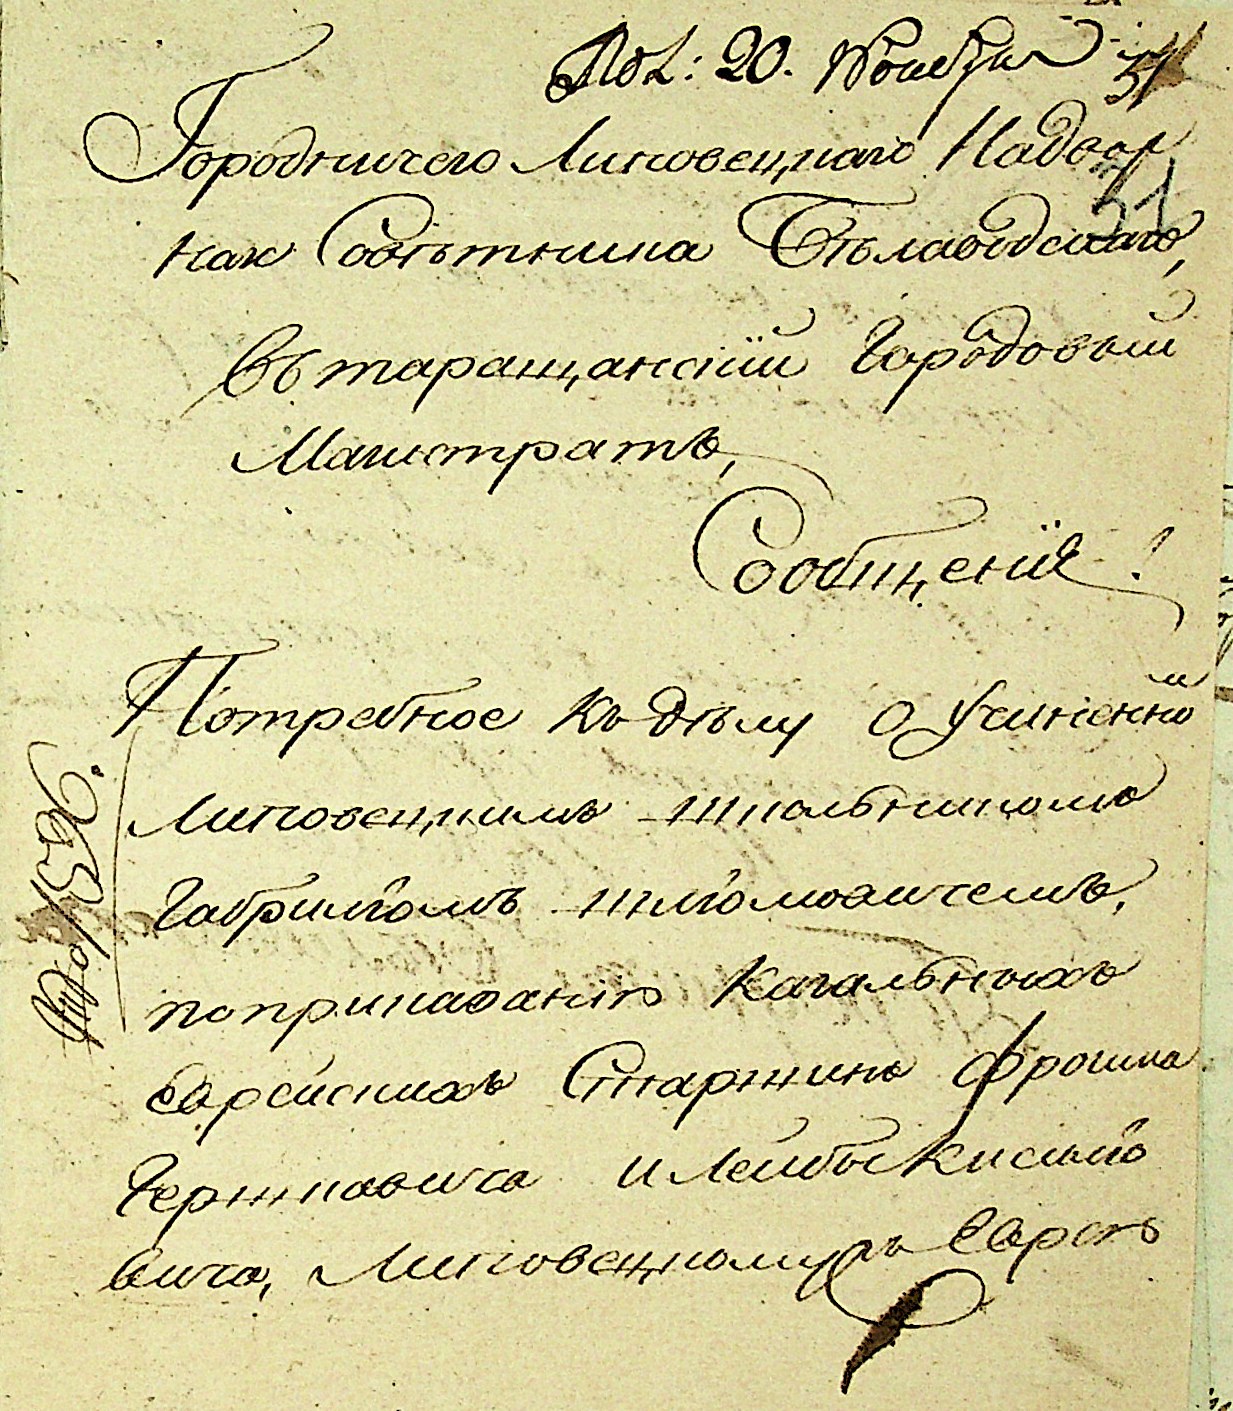 Пол: 20. Ноября
31
Городничего Липовецкаго Надвор
31
наго Советника Бѣлаводскаго,
Въ таращанский Городовый
Магистратъ,
Сообщение!
Потребное къ дѣлу о Учиненно
м
Липовецкимъ школьникомъ
Габриломъ
по приказанію Кагальныхъ
Еврейскихъ Старшинъ Фроима
Гершковича и Лейбы
вича, Липовецкому Еврею